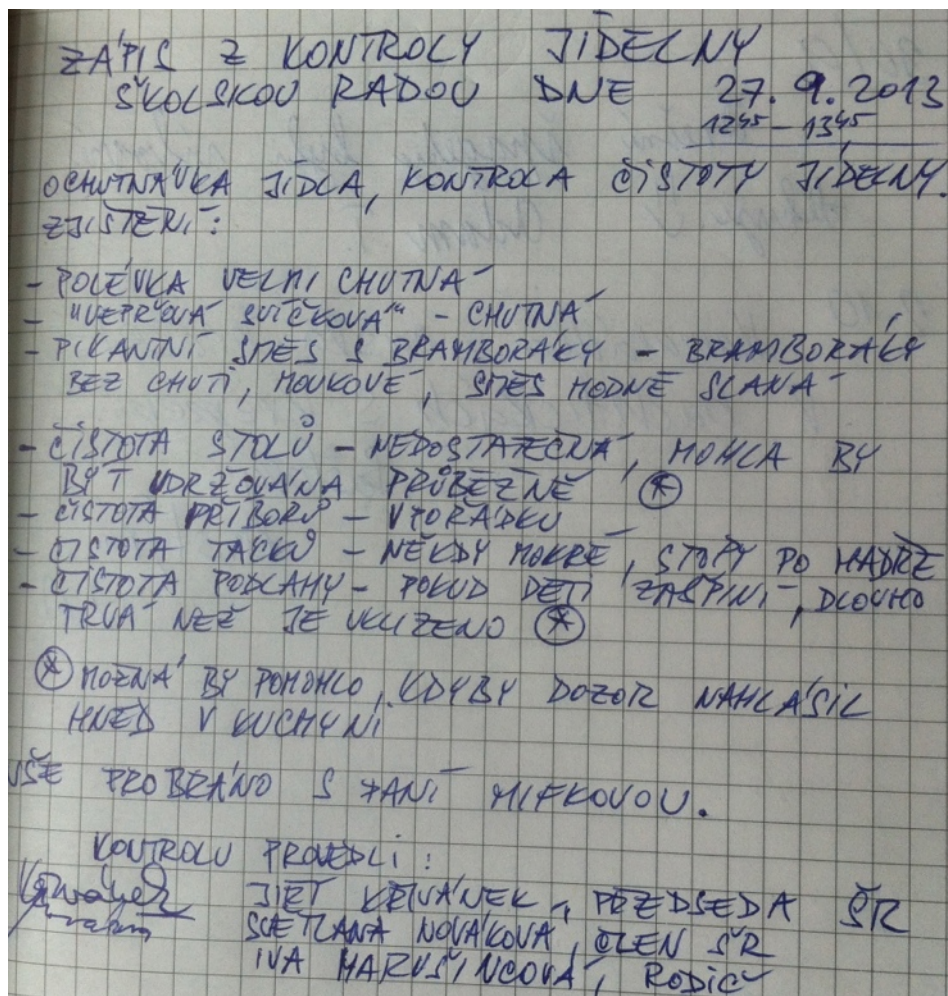 ZÁPIS Z KONTROLY JÍDELNY
ŠKOLSKOU RADOU DNE 27. 9. 2013
12⁴⁵ – 13⁴⁵
OCHUTNÁVKA JÍDLA, KONTROLA ČISTOTY JÍDELNY.
ZJIŠTĚNÍ:
- POLÉVKA VELMI CHUTNÁ
- "VEPŘOVÁ SVÍČKOVÁ" - CHUTNÁ
- PIKANTNÍ SMĚS S BRAMBORÁKY - BRAMBORÁKY
BEZ CHUTI, MOUKOVÉ, SMĚS HODNĚ SLANÁ
- ČISTOTA STOLŮ - NEDOSTATEČNÁ, MOHLA BY
BÝT UDRŽOVÁNA PRŮBĚŽNĚ ⊛
- ČISTOTA PŘÍBORŮ - V POŘÁDKU
- ČISTOTA TÁCKŮ - NĚKDY MOKRÉ, STOPY PO HADŘE
- ČISTOTA PODLAHY - POKUD DĚTI ZAŠPINÍ, DLOUHO
TRVÁ NEŽ JE UKLIZENO ⊛
⊛ MOŽNÁ BY POMOHLO, KDYBY DOZOR NAHLÁSIL
HNED V KUCHYNI
VŠE PROBRÁNO S PANÍ MIFKOVOU.
KONTROLU PROVEDLI:
JIŘÍ KŘIVÁNEK, PŘEDSEDA ŠR
SVĚTLANA NOVÁKOVÁ, ČLEN ŠR
IVA MARUŠINCOVÁ, RODIČ